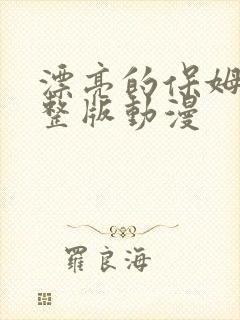 漂亮的保姆
整版動漫
羅良海